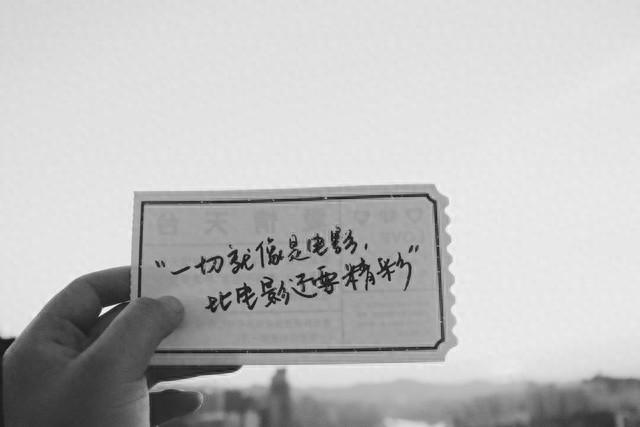 “一切就像是电影，
比电影还要精彩”